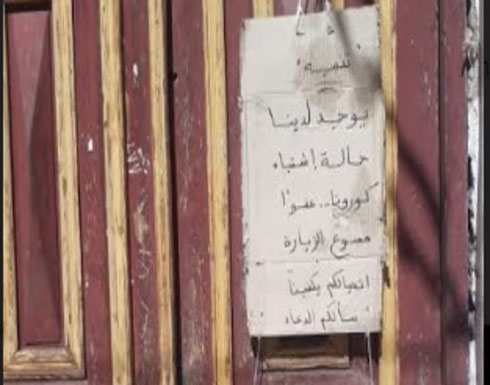 تنبيه
يوجد لدينا
حالة إشتباه
كورونا.. عفوًا
ممنوع الزيارة
اتصالكم يكفينا
نسألكم الدعاء